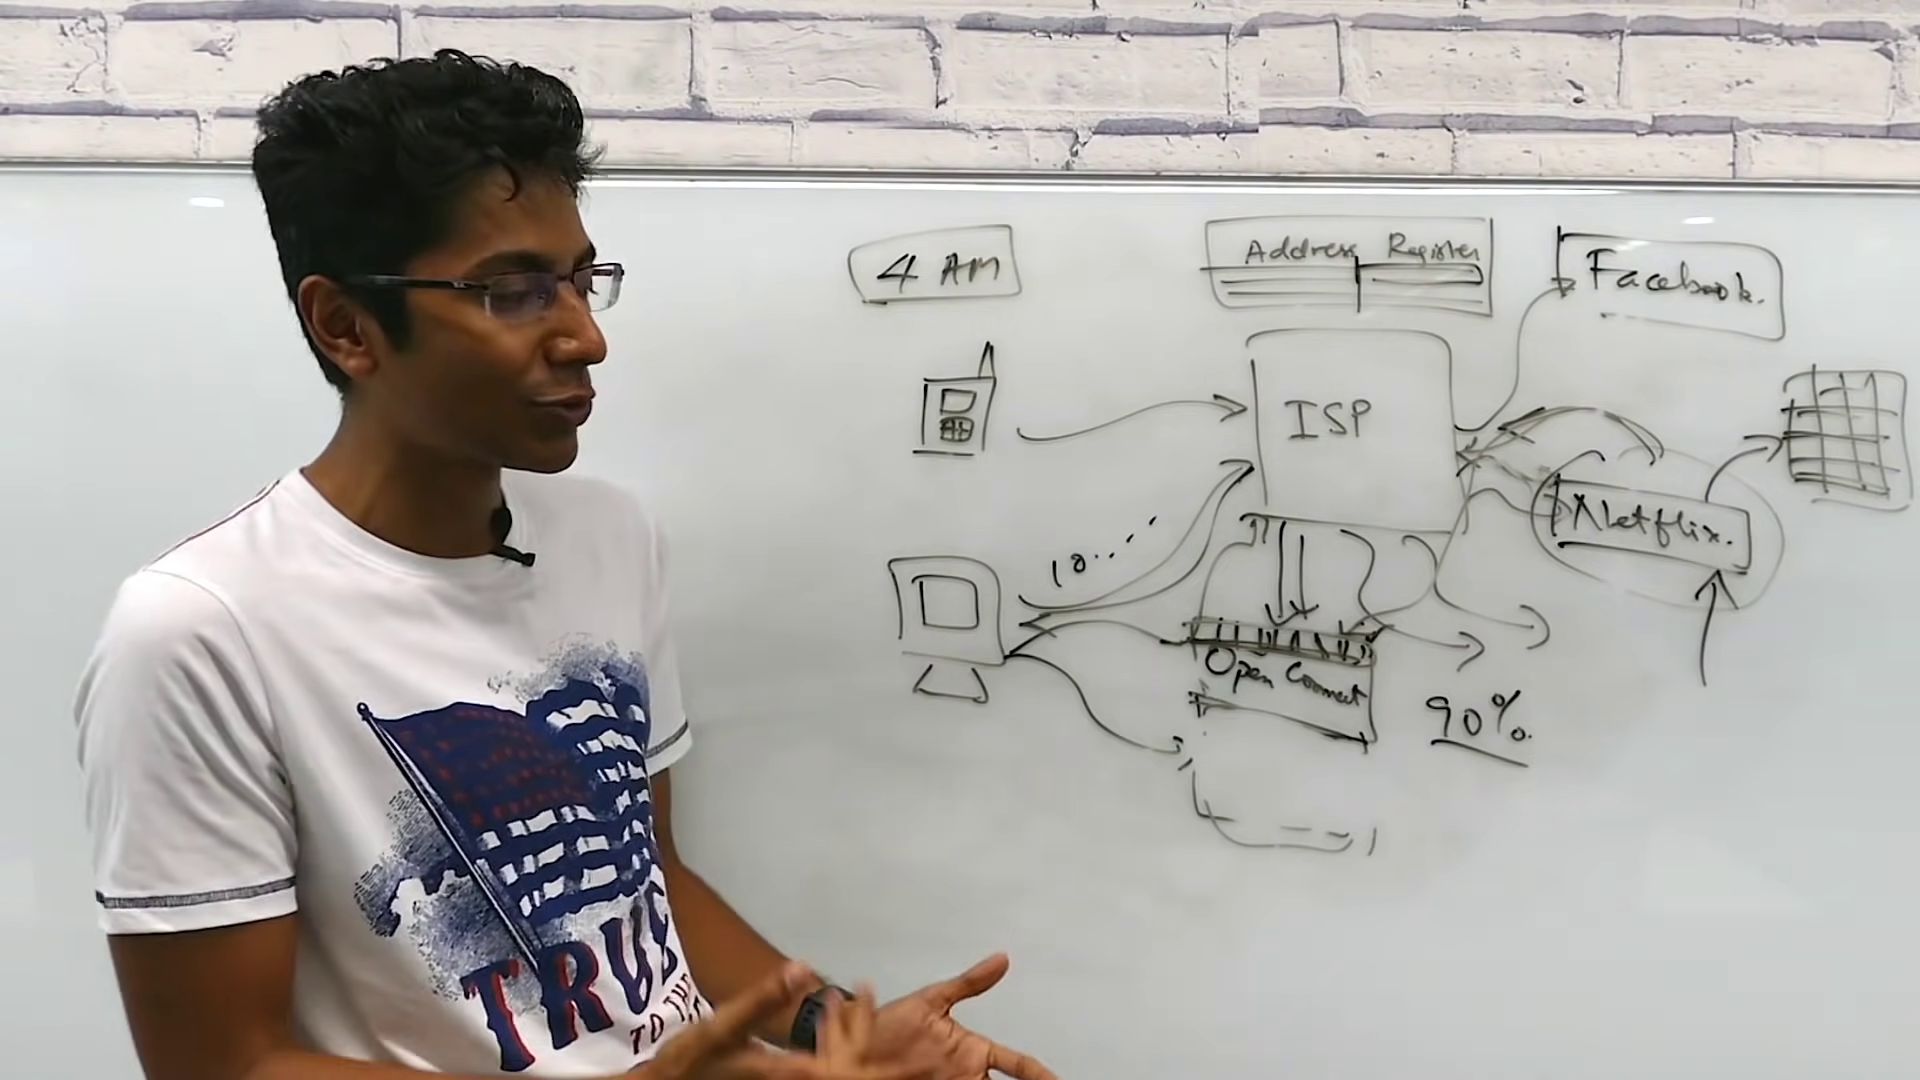 4 AM
Address Register
Facebook.
ISP
Netflix.
10....
Open Connect
90%
TRUE
TO THE